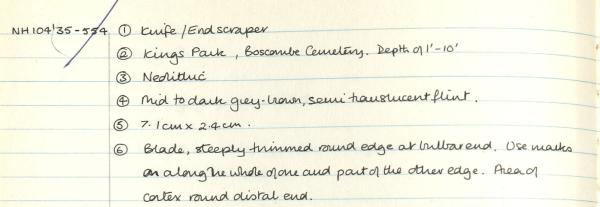 NH104'35-554 ① Knife/Endscraper
② Kings Park, Boscombe Cemetery. Depth of 1'-10'
③ Neolithic
④ Mid to dark grey-brown, semi translucent flint.
⑤ 7.1cm x 2.4cm.
⑥ Blade, steeply trimmed round edge at bulbar end. Use marks
on along the whole of one and part of the other edge. Area of
cortex round distal end.